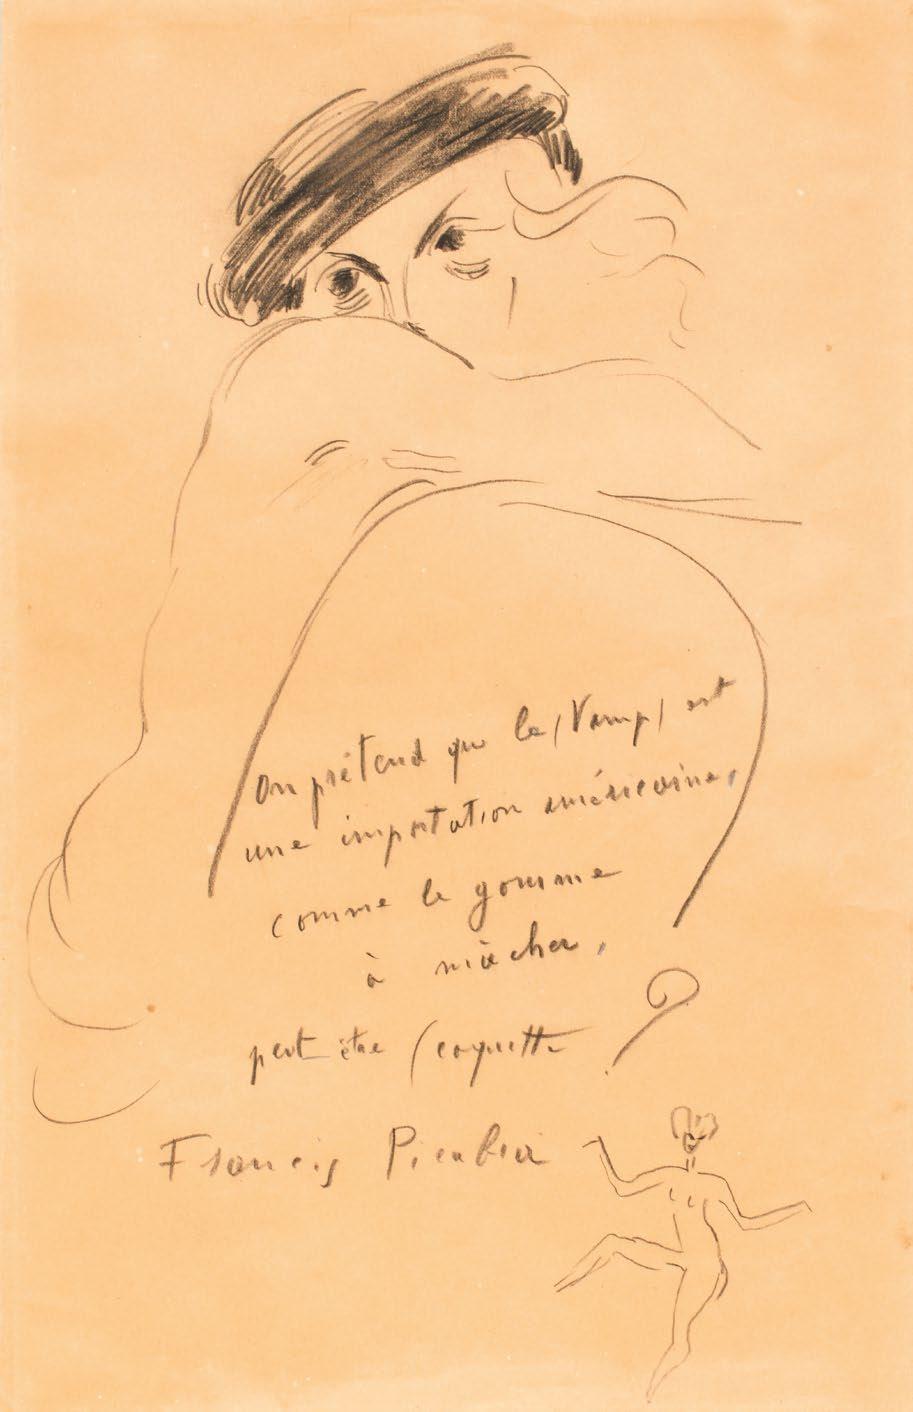 On prétend que la (Vamp) est
une importation américaine,
comme la gomme
à mâcher,
peut-être (coquette ?
Francis Picabia